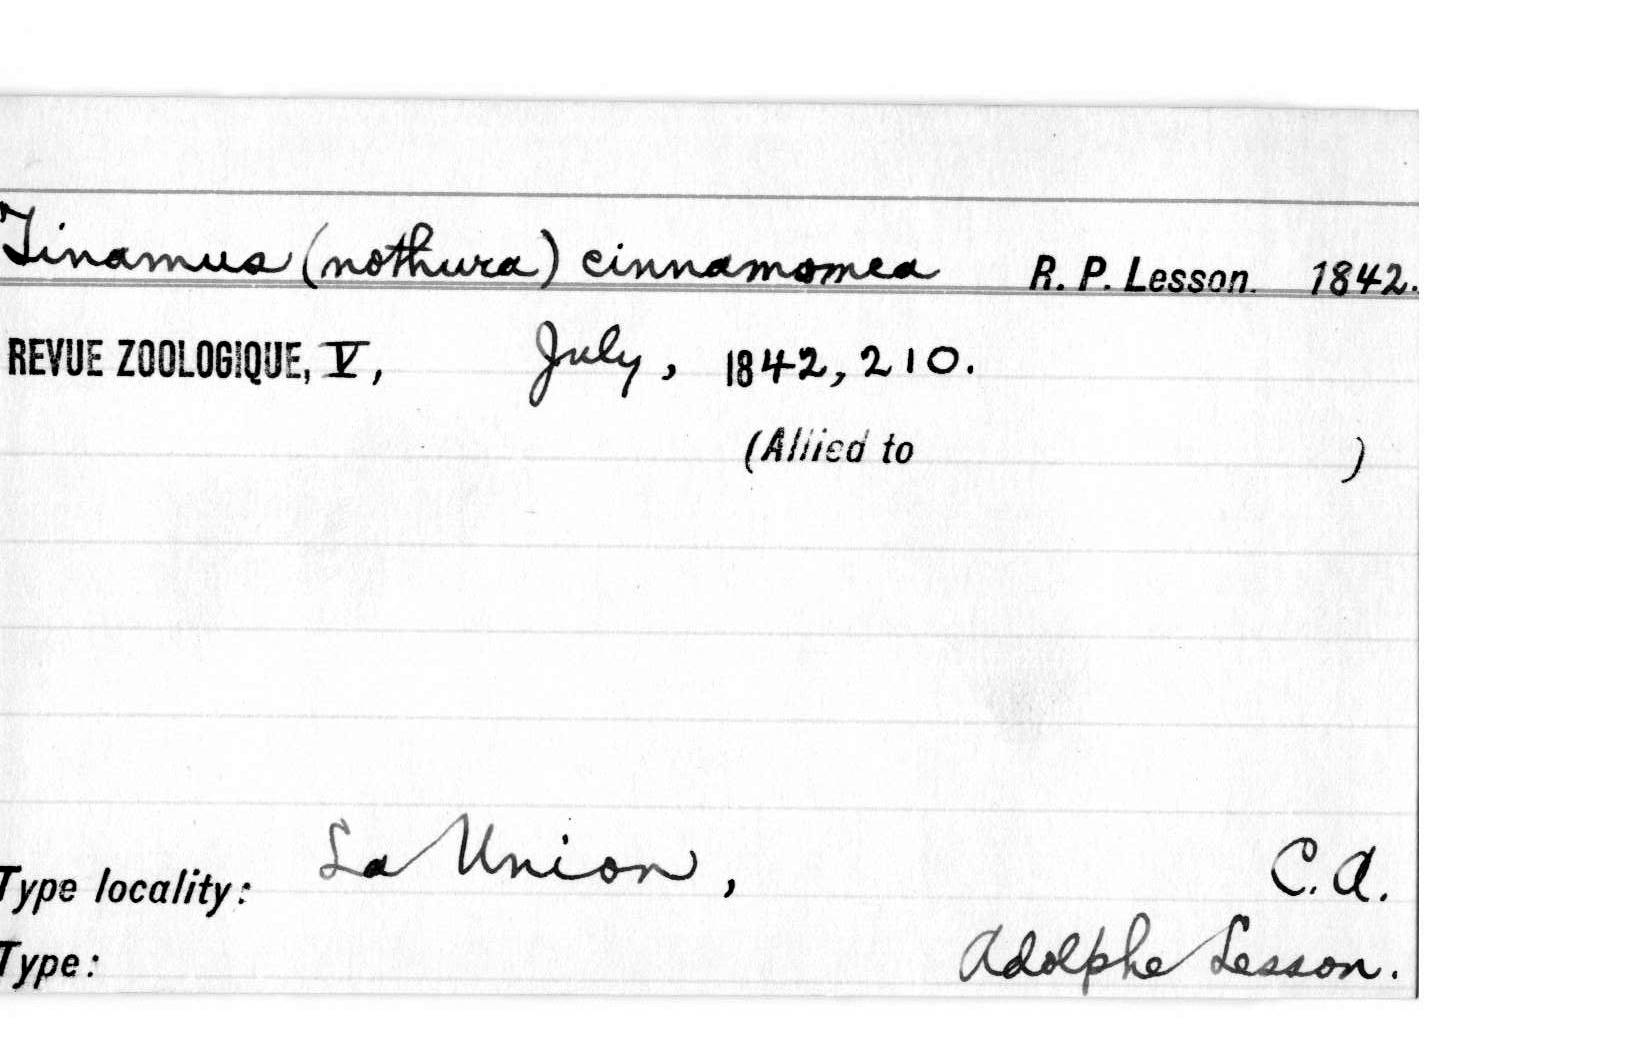 Tinamus (nothura) cinnamomea R. P. Lesson. 1842.
REVUE ZOOLOGIQUE, V, July, 1842, 210.
(Allied to )
Type locality: La Union, C.A.
Type: Adolphe Lesson.